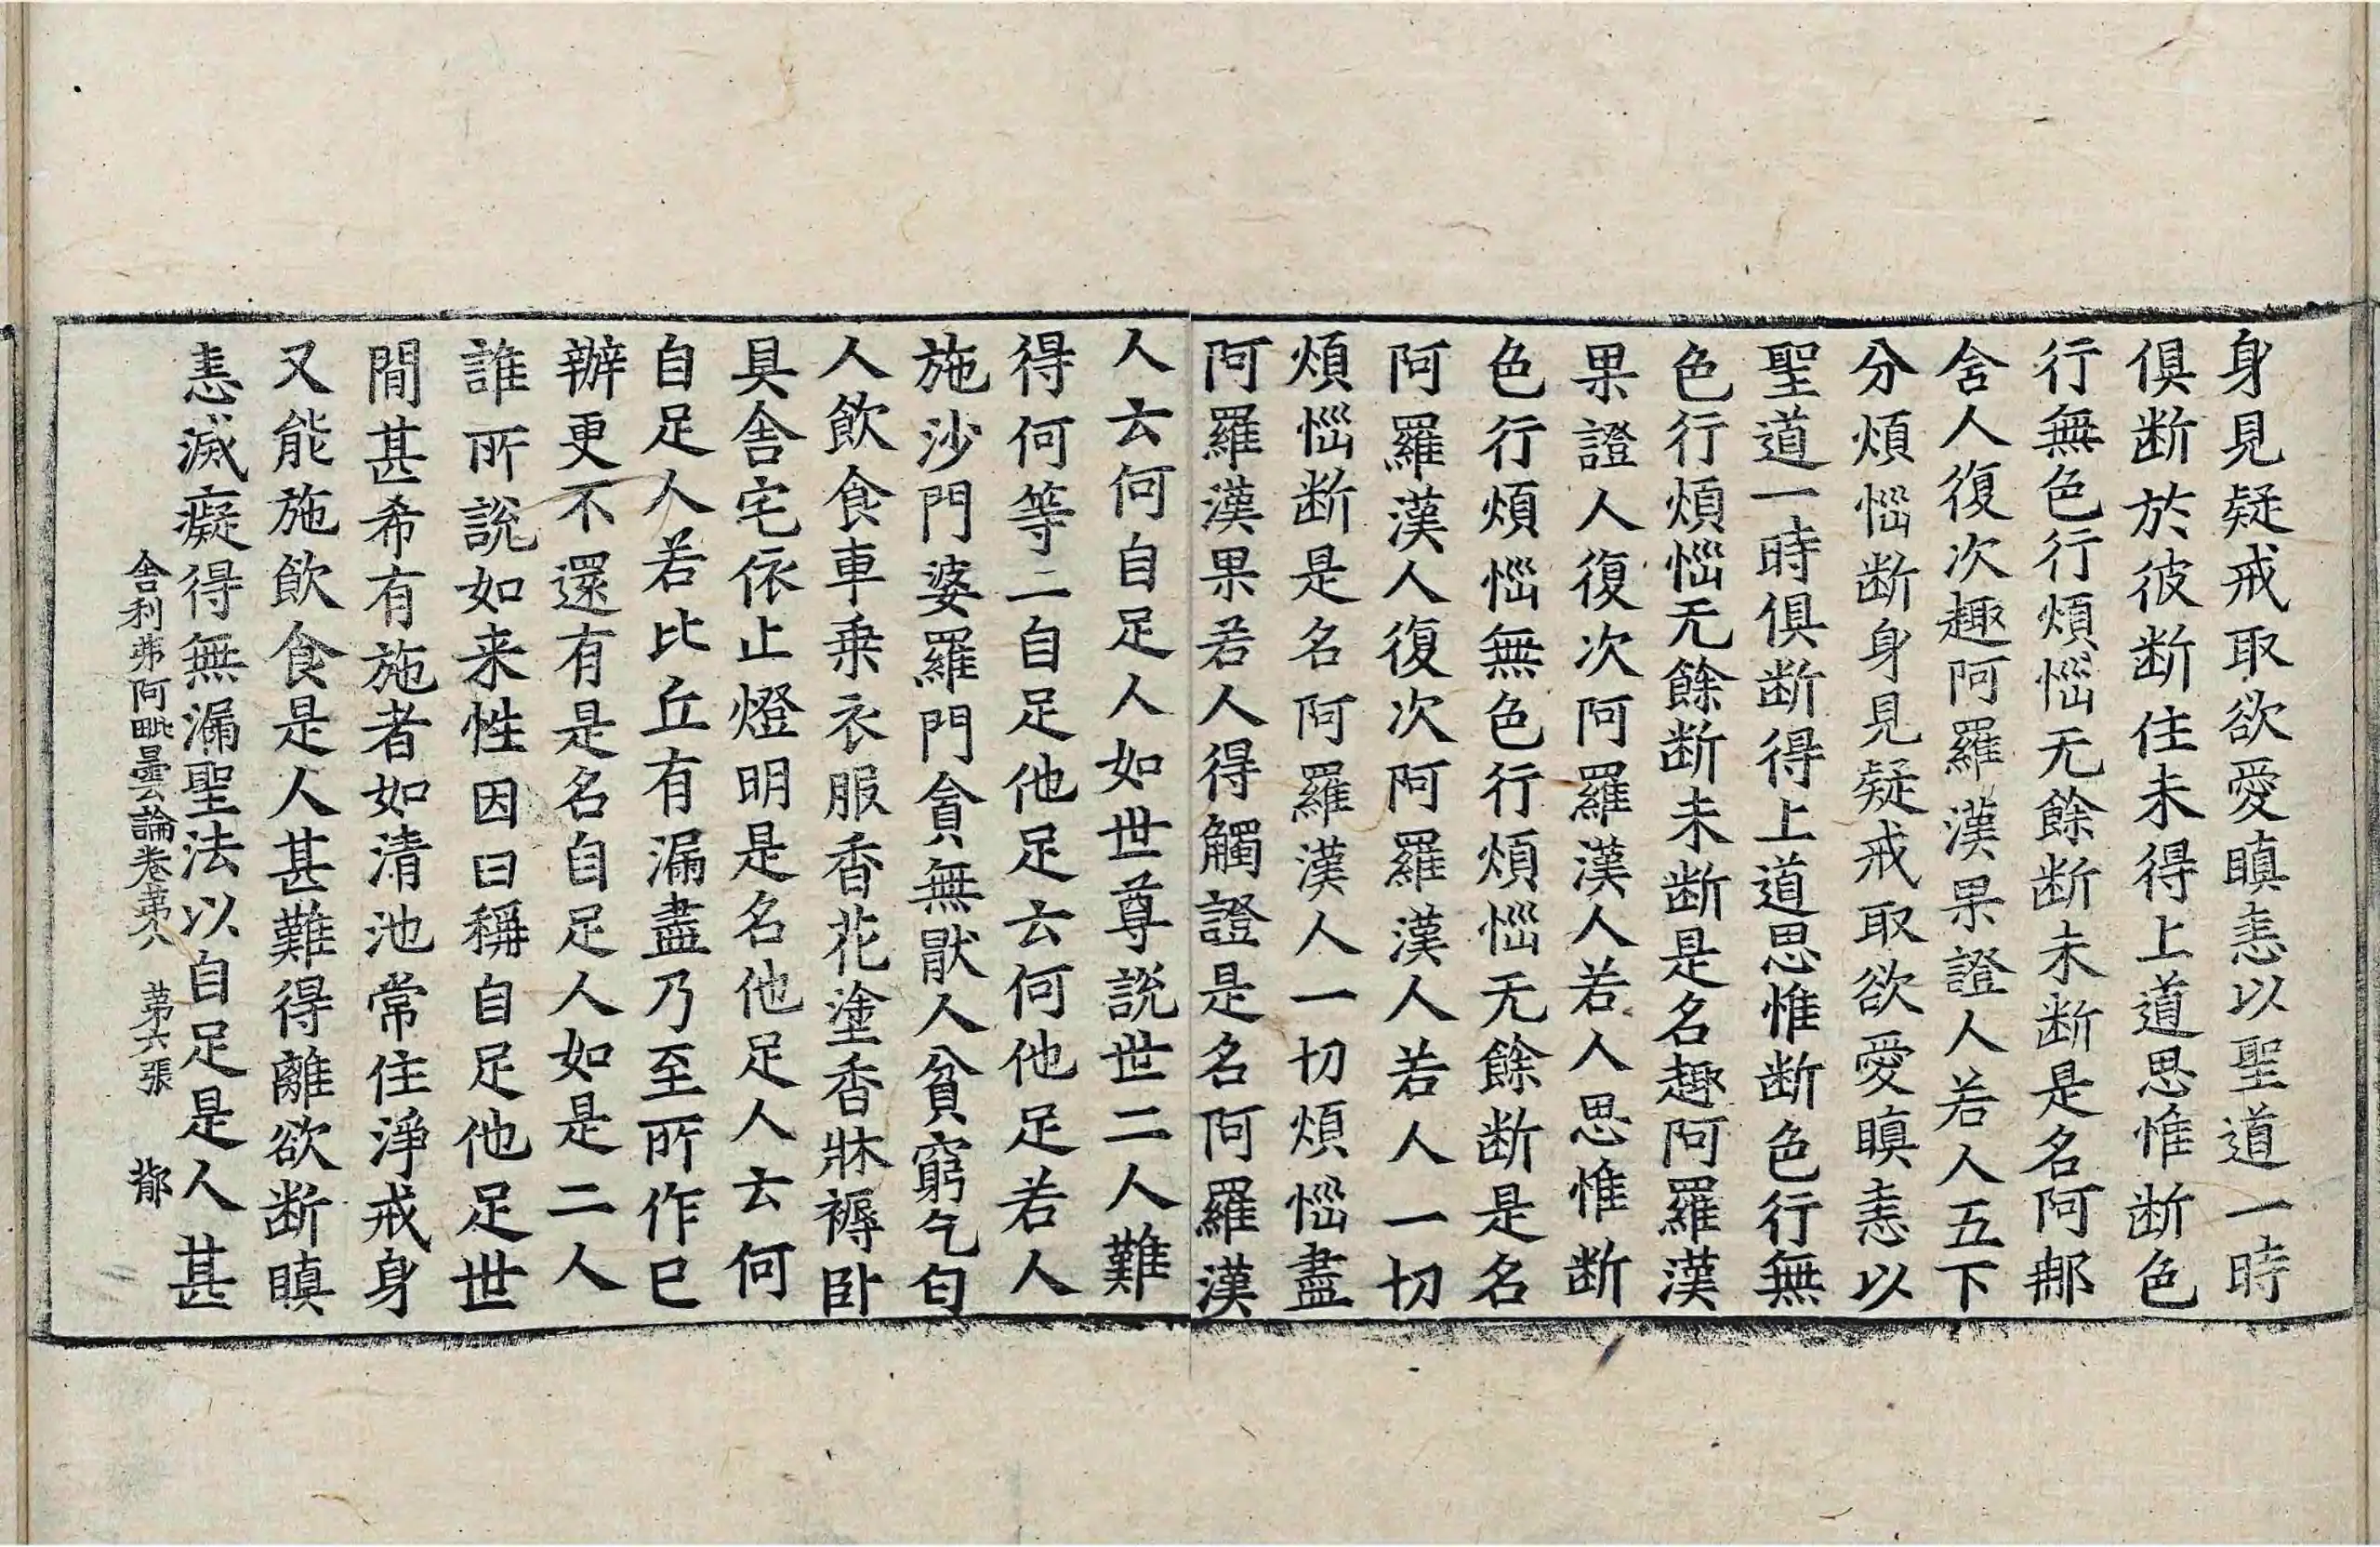 身見疑戒取欲愛瞋恚以聖道一時
俱断於彼断住未得上道思惟断色
行無色行煩惱无餘断未断是名阿那
舍人復次趣阿羅漢果證人若人五下
分煩惱断身見疑戒取欲愛瞋恚以
聖道一時俱断得上道思惟断色行無
色行煩惱无餘断未断是名趣阿羅漢
果證人復次阿羅漢人若人思惟断
色行煩惱無色行煩惱无餘断是名
阿羅漢人復次阿羅漢人若人一切
煩惱断是名阿羅漢人一切煩惱盡
阿羅漢果若人得觸證是名阿羅漢
人云何自足人如世尊說世二人難
得何等二自足他足云何他足若人
施沙門婆羅門貪無猒人貧窮乞匄
人飲食車乗衣服香花塗香牀褥卧
具舍宅依止燈明是名他足人云何
自足人若比丘有漏盡乃至所作已
辦更不還有是名自足人如是二人
誰所說如来性因曰稱自足他足世
間甚希有施者如清池常住淨戒身
又能施飲食是人甚難得離欲断瞋
恚滅癡得無漏聖法以自足是人甚
舍利弗阿毗曇論卷苐八 苐六張 鄁